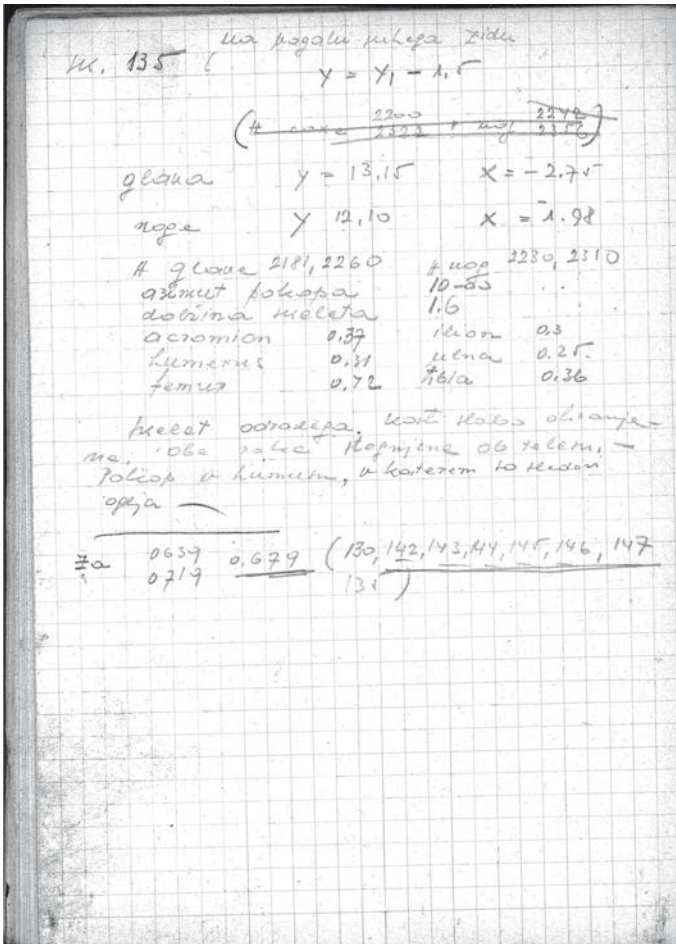 na vogalu zidu
sk. 135 (
y = y₁ - 1.5
( # glave 2200 2322, nog 2242 2356 )
glava y = 13,15 x = -2.75
noge y 12,10 x = -1.98
# glave 2181, 2260 # nog 2230, 2310
azimut pokopa 10-50
dolžina skeleta 1.6
acromion 0,37 ilion 0,3
humerus 0,31 ulna 0.25.
femur 0,72 tibia 0,36
skelet odraslega. kosti slabo ohranje-
ne. Obe roke stegnjene ob telesu. —
Pokop v humusu, v katerem so sledovi
oglja —
Za 0639 0.679 (130, 142, 143, 144, 145, 146, 147
0719 131 )